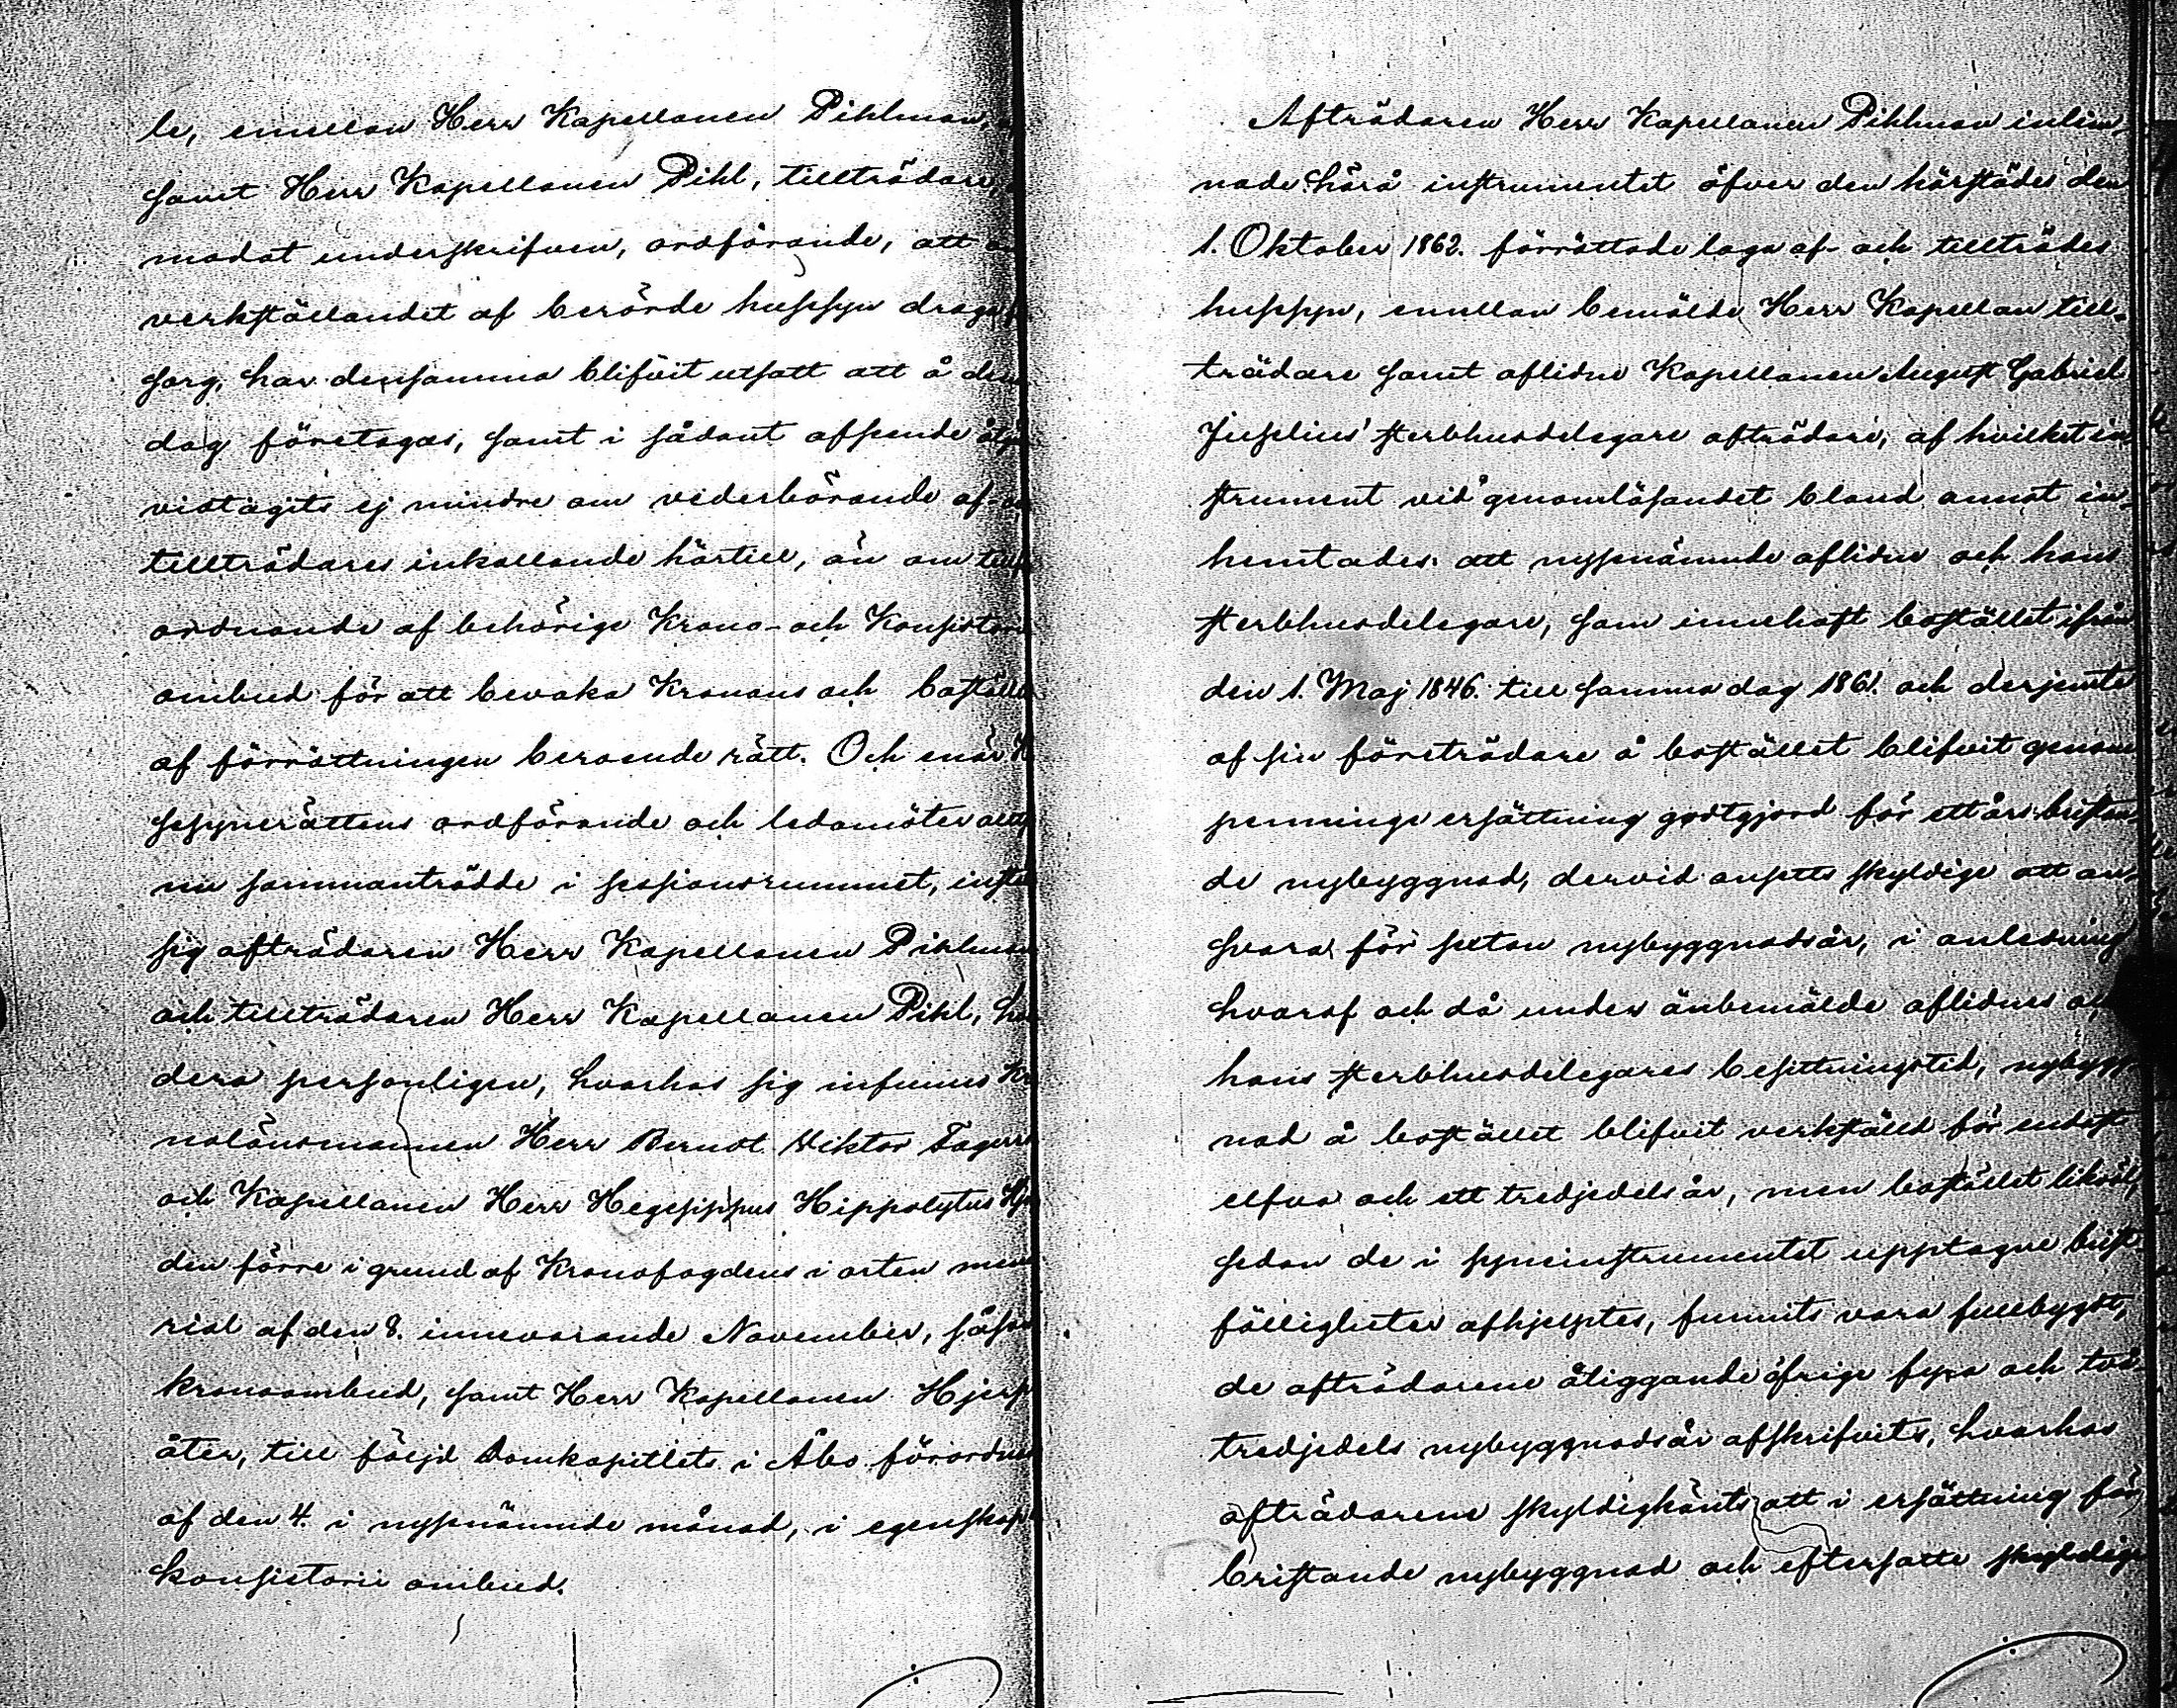 le, emellan Herr Kapellanen Pihlman,
samt Herr Kapellanen Pihl, tillträdare,
modat underskrifven, ordförande, att
verkställandet af berörde hussyn draga
sorg, har densamma blifvit utsatt att å den
dag företagas, samt i sådant afseende
vidtagits ej mindre om vederbörande af-
tillträdares inkallande härtill, än om
ordnande af behörige Krono- och Konsistorii
ombud för att bevaka Kronans och boställets
af förrättningen beroende rätt. Och enär
sesynerättens ordförande och ledamöter
nu sammanträdde i sessionsrummet,
sig afträdaren Herr Kapellanen Pihlman
och tillträdaren Herr Kapellanen Pihl,
dera personligen, hvarhos sig infunno
nolänsmannen Herr Berndt Viktor
och Kapellanen Herr Hegesippus Hippolytus
den förre i grund af Kronofogdens i orten
rial af den 8. innevarande November, såsom
kronoombud, samt Herr Kapellanen
åter, till följd Domkapitlets i Åbo
af den 4. i nyssnämnde månad, i egenskap
konsistorii ombud.
Afträdaren Herr Kapellanen Pihlman inlem-
nade härå instrumentet öfver den härstädes den
1. Oktober 1862. förrättade laga af- och tillträdes
hussyn, emellan bemälde Herr Kapellan till-
trädare samt aflidne Kapellanen August Gabriel
sterbhusdelegare afträdare, af hvilket in-
strument vid genomläsandet bland annat in-
hemtades: att nyssnämnde aflidne och hans
sterbhusdelegare, som innehaft bostället ifrån
den 1. Maj 1846. till samma dag 1861. och derjemte
af sin företrädare å bostället blifvit genom
penninge ersättning godtgjord för ett års bristan-
de nybyggnad, dervid ansetts skyldige att an-
svara för sexton nybyggnadsår, i anledning
hvaraf och då under änbemälde aflidnes och
hans sterbhusdelegares besittningstid, nybygg-
nad å bostället blifvit verkställd för endast
elfva och ett tredjedels år, men bostället likväl,
sedan de i syneinstrumentet upptagne brist-
fälligheter afhjelptes, funnits vara fullbygdt,
de afträdarene åliggande öfrige fyra och två
tredjedels nybyggnadsår afskrifvits, hvarhos
afträdarene skyldigkänts att i ersättning för
bristande nybyggnad och eftersatte skyldige